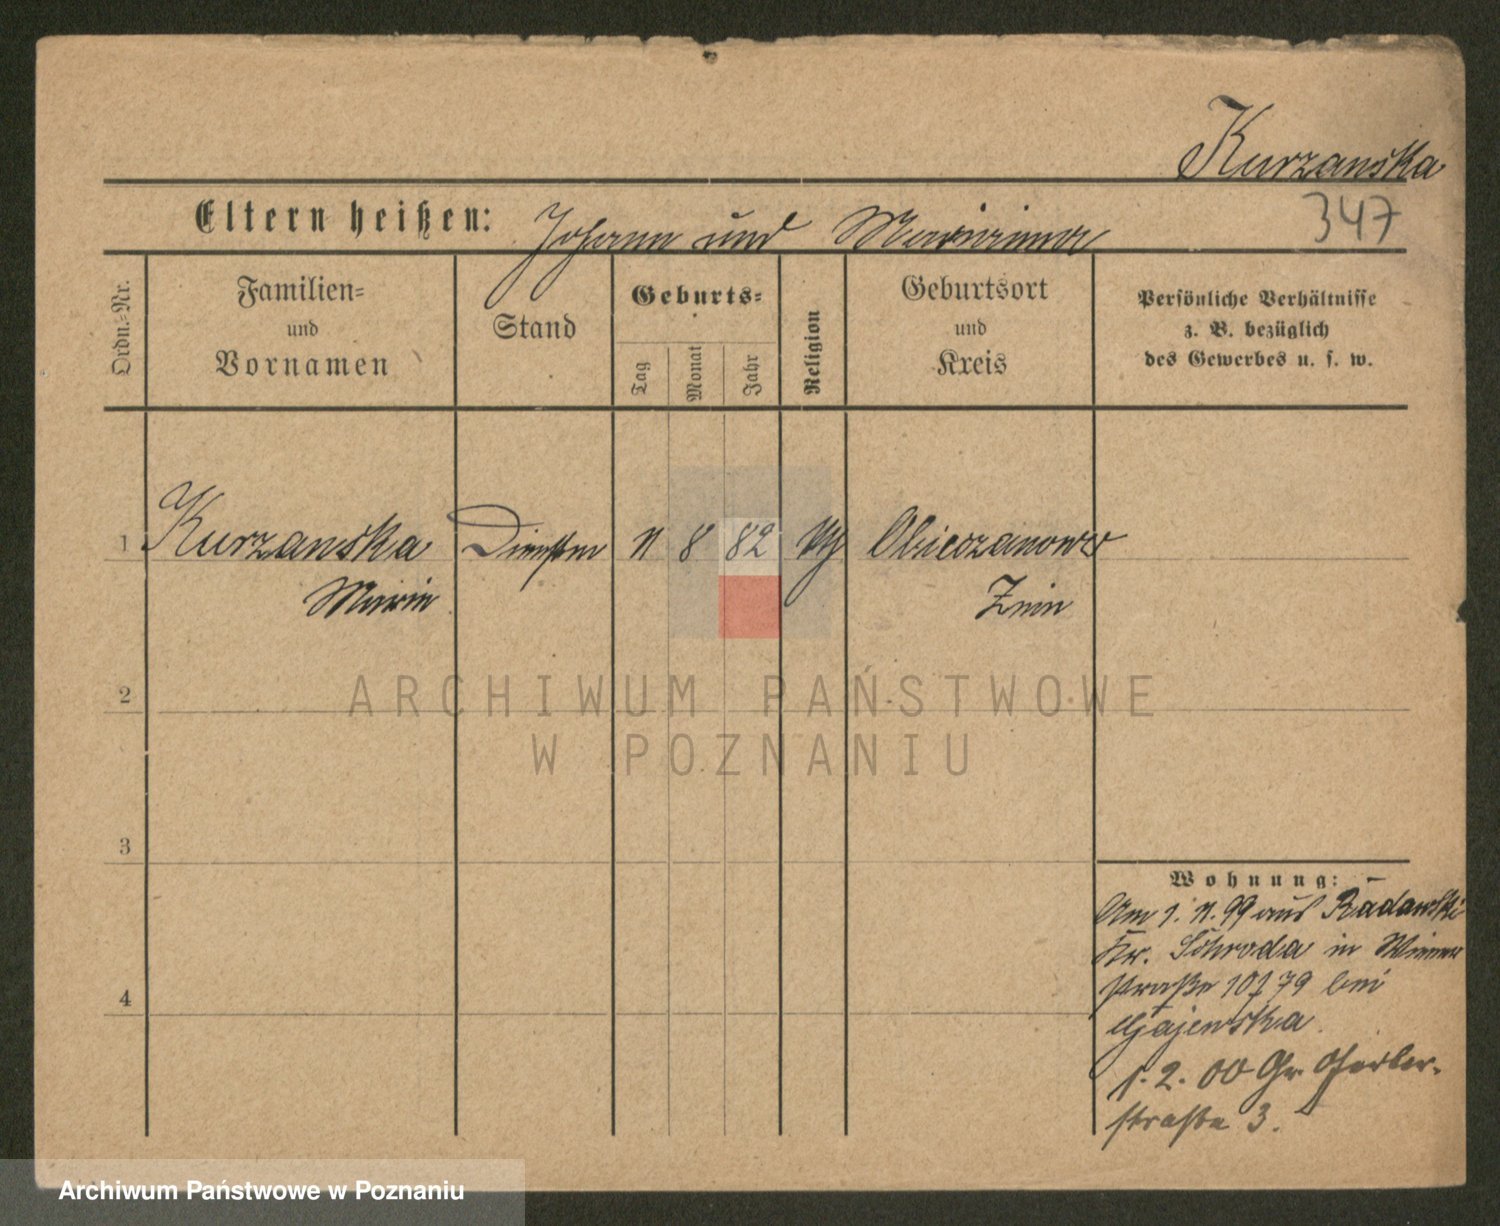 Kurzanska
347
Eltern heißen: Johann und Marianna
Ordn.-Nr.
Familien=
und
Vornamen
Stand
Geburts=
Tag
Monat
Jahr
Religion
Geburtsort
und
Kreis
Persönliche Verhältnisse
z. B. bezüglich
des Gewerbes u. s. w.
1 Kurzanska 8 82 Obieczanowo
Marie Znin
2
ARCHIWUM PAŃSTWOWE
W POZNANIU
3
Wohnung:
Am 1. 99 aus
Kr. Schroda in
straße 79 bei
Gajewska
1. 2. 00 Gr. Gerber-
straße 3.
4
Archiwum Państwowe w Poznaniu